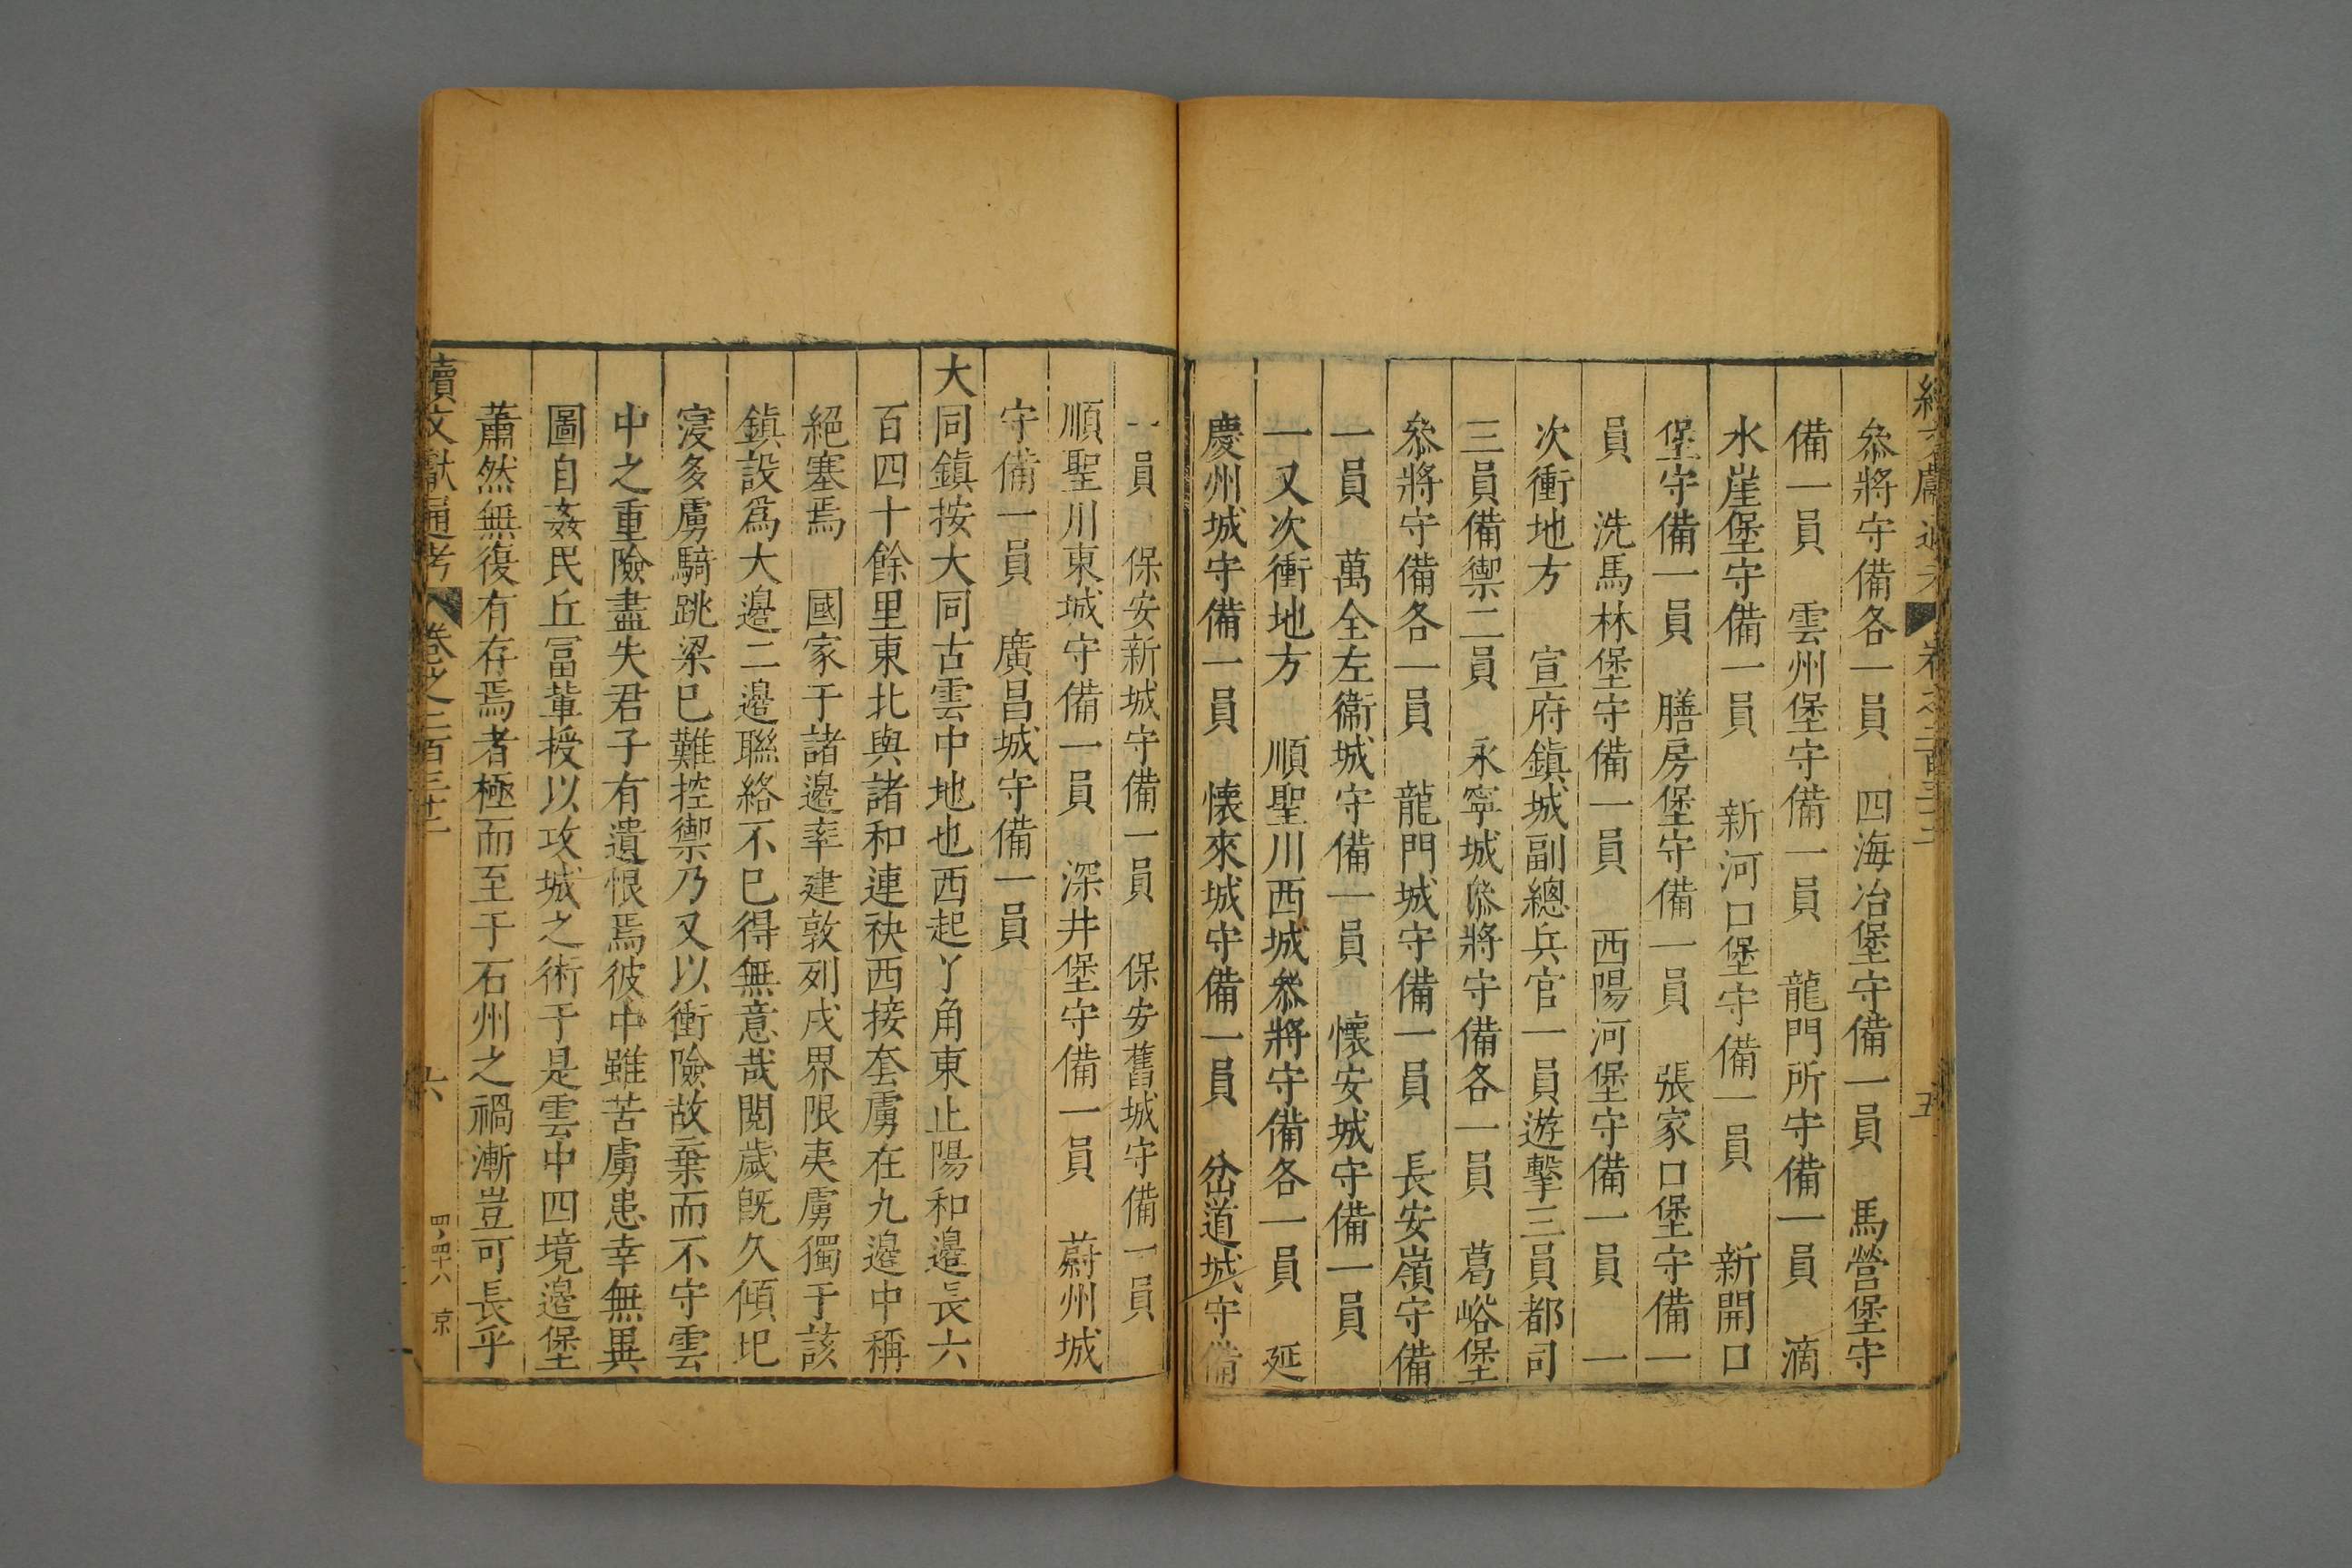 續文獻通考 卷之二百三十二 五
叅將守備各一員 四海冶堡守備一員 馬營堡守
備一員 雲州堡守備一員 龍門所守備一員 滴
水崖堡守備一員 新河口堡守備一員 新開口
堡守備一員 膳房堡守備一員 張家口堡守備一
員 洗馬林堡守備一員 西陽河堡守備一員 一
次衝地方 宣府鎮城副總兵官一員遊擊三員都司
三員備禦二員 永寧城叅將守備各一員 葛峪堡
叅將守備各一員 龍門城守備一員 長安嶺守備
一員 萬全左衛城守備一員 懷安城守備一員
一又次衝地方 順聖川西城叅將守備各一員 延
慶州城守備一員 懷來城守備一員 岔道城守備
一員 保安新城守備一員 保安舊城守備一員
順聖川東城守備一員 深井堡守備一員 蔚州城
守備一員 廣昌城守備一員
大同鎮按大同古雲中地也西起丫角東止陽和邊長六
百四十餘里東北與諸和連袂西接套虜在九邊中稱
絕塞焉 國家于諸邊率建敦列戍界限夷虜獨于該
鎮設爲大邊二邊聯絡不巳得無意哉閱歲旣久傾圯
寖多虜騎跳梁巳難控禦乃又以衝險故棄而不守雲
中之重險盡失君子有遺恨焉彼中雖苦虜患幸無異
圖自姦民丘冨輩授以攻城之術于是雲中四境邊堡
蕭然無復有存焉者極而至于石州之禍漸豈可長乎
續文獻通考 卷之二百三十二 六 四ノ四十八 京